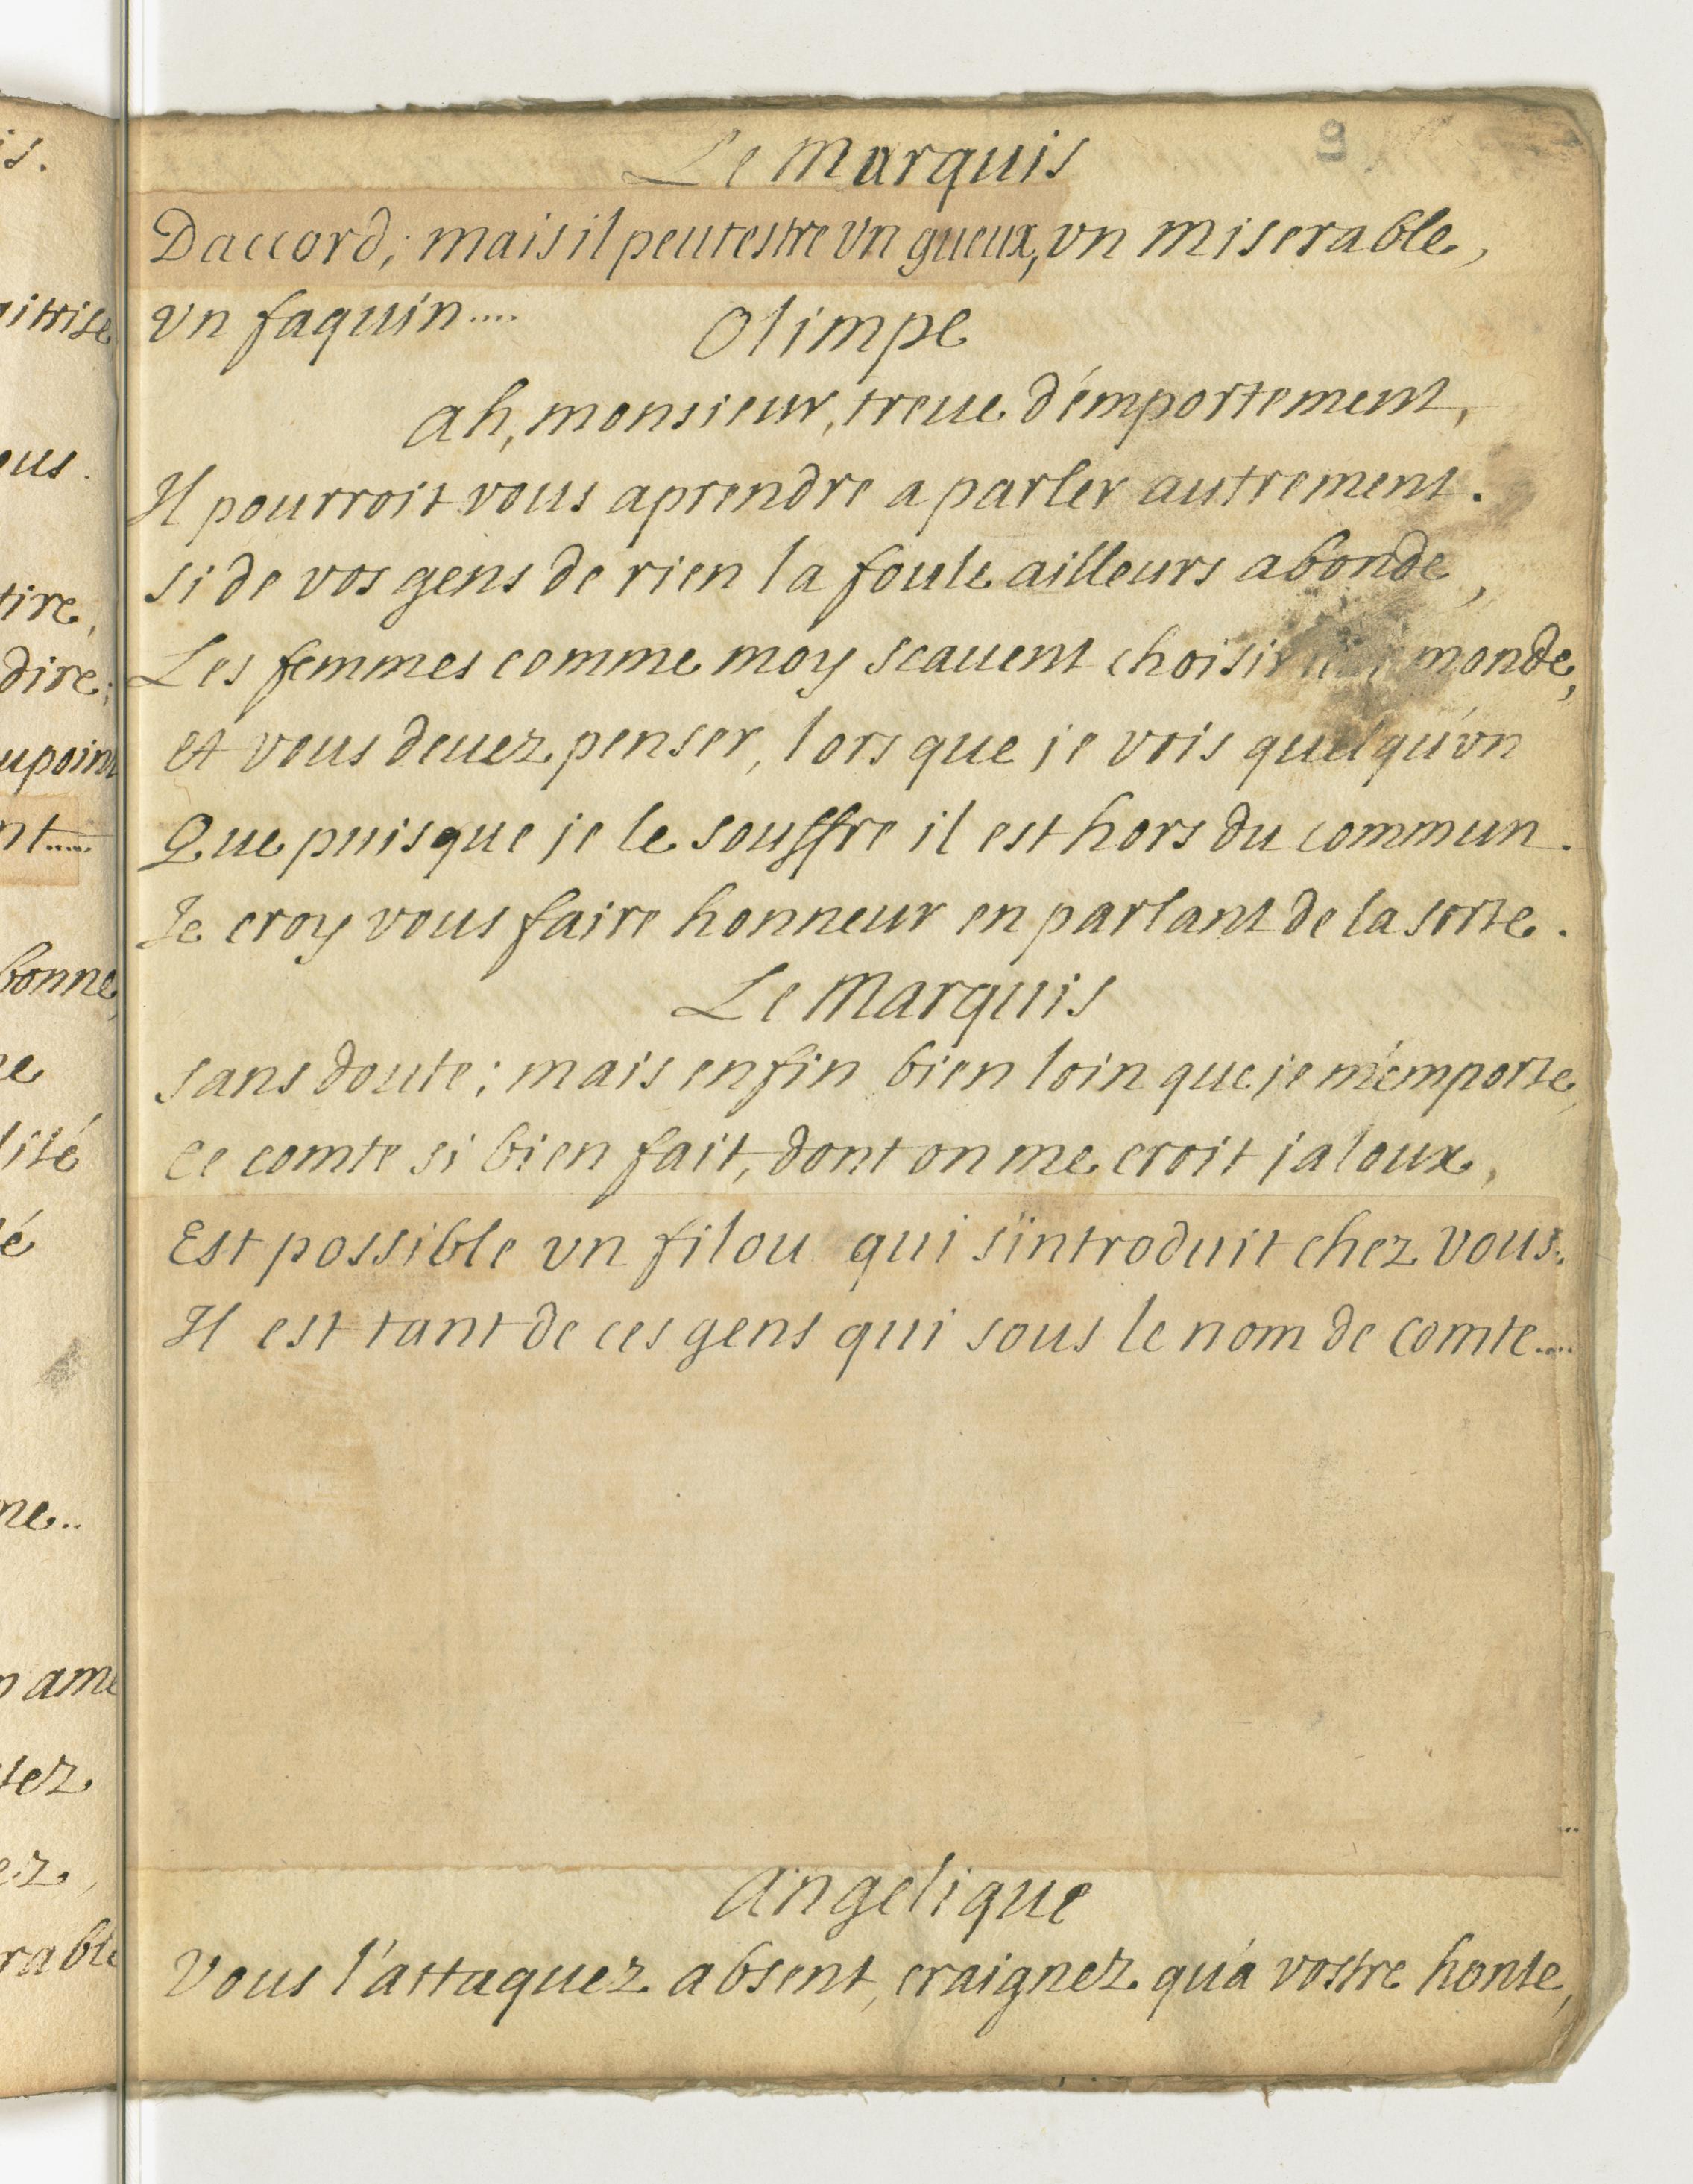 9
Le Marquis
Daccord; mais il peut estre vn gueux, vn miserable,
vn faquin....
Olimpe
ah, monsieur, treue d'émportement,
Il pourroit vous aprendre a parler autrement.
si de vos gens de rien la foule ailleurs abonde,
Les femmes comme moy scauent choisir monde,
et vous deuez penser, lors que je vois quelqu'vn
Que puisque je le souffre il est hors du commun.
Je croy vous faire honneur en parlant de la sorte.
Le Marquis
sans doute; mais enfin bien loin que je m'emporte,
ce comte si bien fait, dont on me croit jaloux,
Est possible vn filou qui s'introduit chez vous.
Il est tant de ces gens qui sous le nom de comte....
angelique
Vous l'attaquez absent, craignez qu'a vostre honte,
is.
aittise
ous.
tire,
dire;
upoint
nt.....
bonne,
lité
lé
me..
n ame
tez
ez,
rable